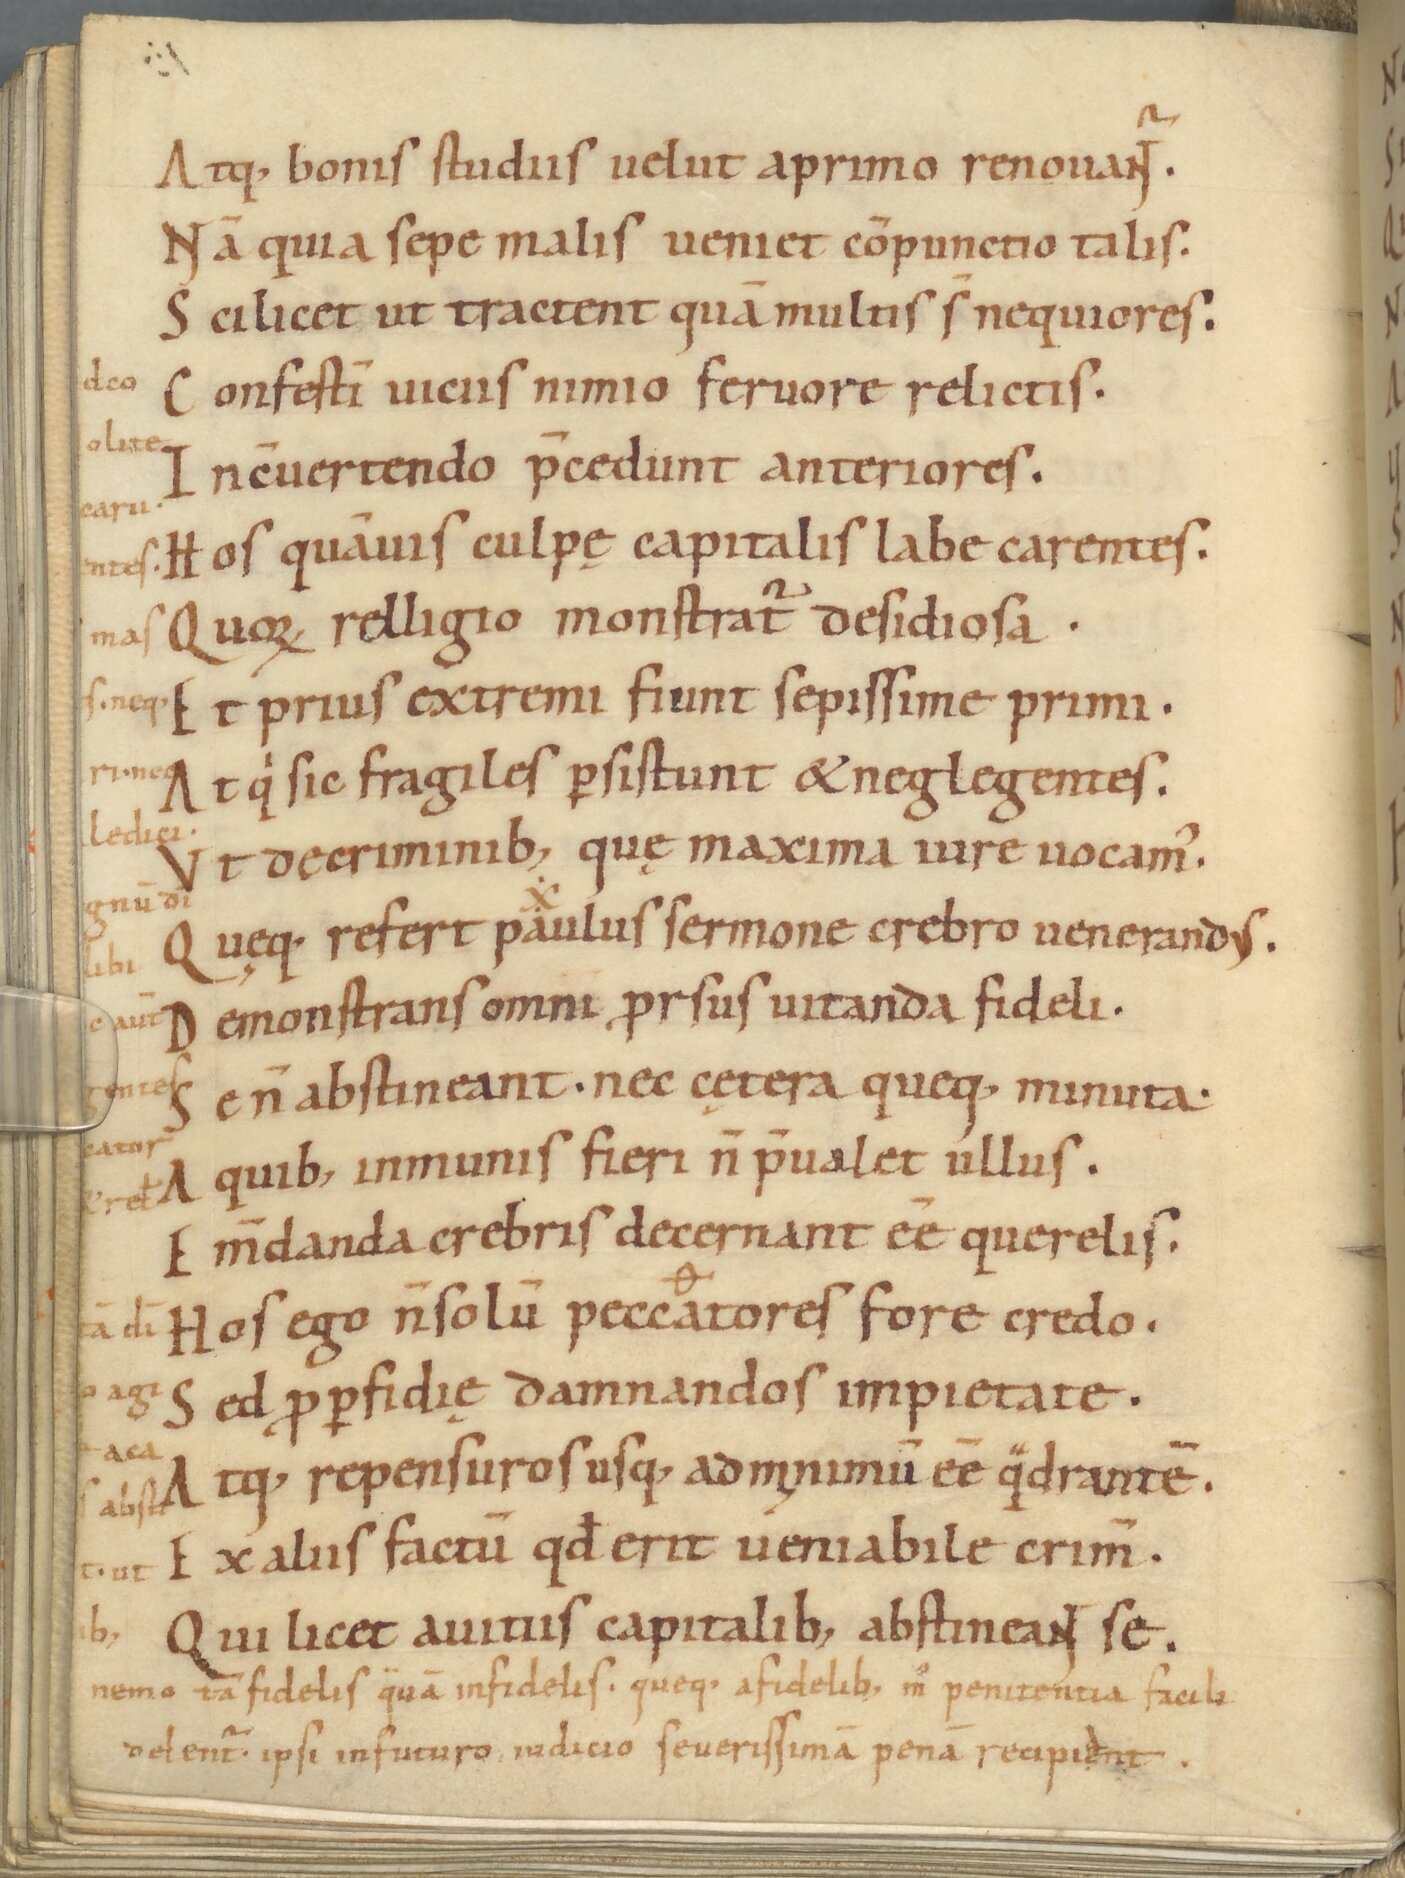 Atq, bonis studiis uelut aprimo renouanť.
Nā quia sepe malis ueniet cōpunctio talis.
Scilicet ut tractent quā multis s̄ nequiores.
deo
Confestī uiciis nimio feruore relictis.
olite
In c̄uertendo p̄cedunt anteriores.
earu.
entes.
Hos quāuis culpę capitalis labe carentes.
mas
Quoꝝ relligio monstrat᷑ desidiosa.
s. neq,
Et prius extremi fiunt sepissime primi.
ri. neq
At qͥ sic fragiles ꝑsistunt & neglegentes.
ledici.
Vt de criminib, quę maxima iure uocam᾿.
gnū dī
Quęq, refert paulus sermone crebro uenerandus.
libi
aut̄
Demonstrans omni ꝓrsus uitanda fideli.
gentes
Se n̄ abstineant. nec cętera queq, minuta.
cator
A quib, inmunis fieri n̄ p̄ualet ullus.
& rel
Em̄danda crebris decernant eē querelis.
tā dī
Hos ego n̄ solū peccatores fore credo.
o agi
Sed ꝓ ꝑfidię damnandos impietate.
aca
Atq, repensuros usq, ad mynimū eē qͣdrantē.
s absti
Ex aliis factū qđ erit ueniabile crim̄.
t. ut
ib,
Qui licet auitiis capitalib, abstineant se.
nemo tā fidelis quā infidelis. queq, afidelib, m͛ penitentia facili
delent᷑. ipsi infuturo iudicio seuerissimā penā recipient.